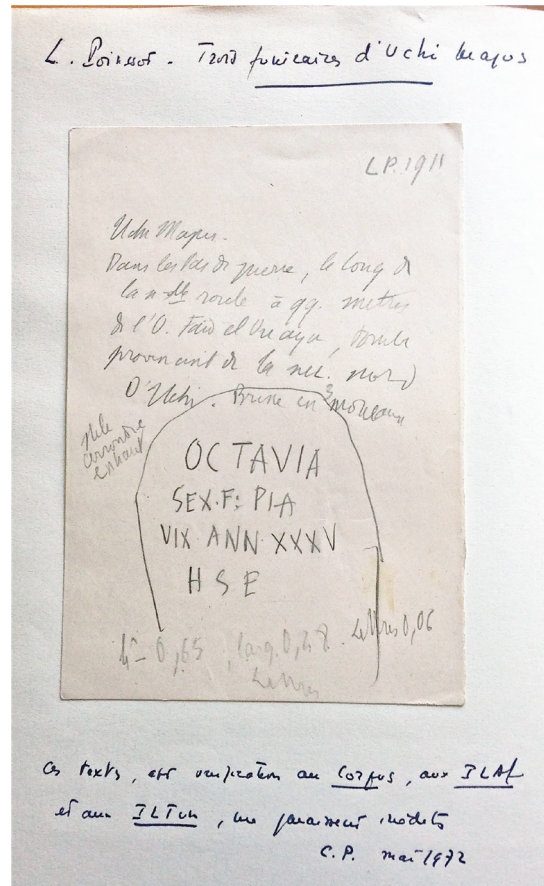 L. Poinssot - Trois funéraires d'Uchi Majus
L.P. 1911
Uchi Majus.
Dans les tas de pierre, le long de
la nlle route à qq. mètres
de l'O. Faïd el, tombe
provenant de la nec. nord
D'Uchi. Brisée en 3 morceaux
stèle
arrondie
en haut
OCTAVIA
SEX·F· PIA
VIX ANN·XXXV
H S E
hr = 0,65 ; larg. 0,48. Lettres 0,06
Lettres
ces textes, après vérification au Corpus, aux ILAf
et aux ILTun, me paraissent inédits
C.P. mai 1972